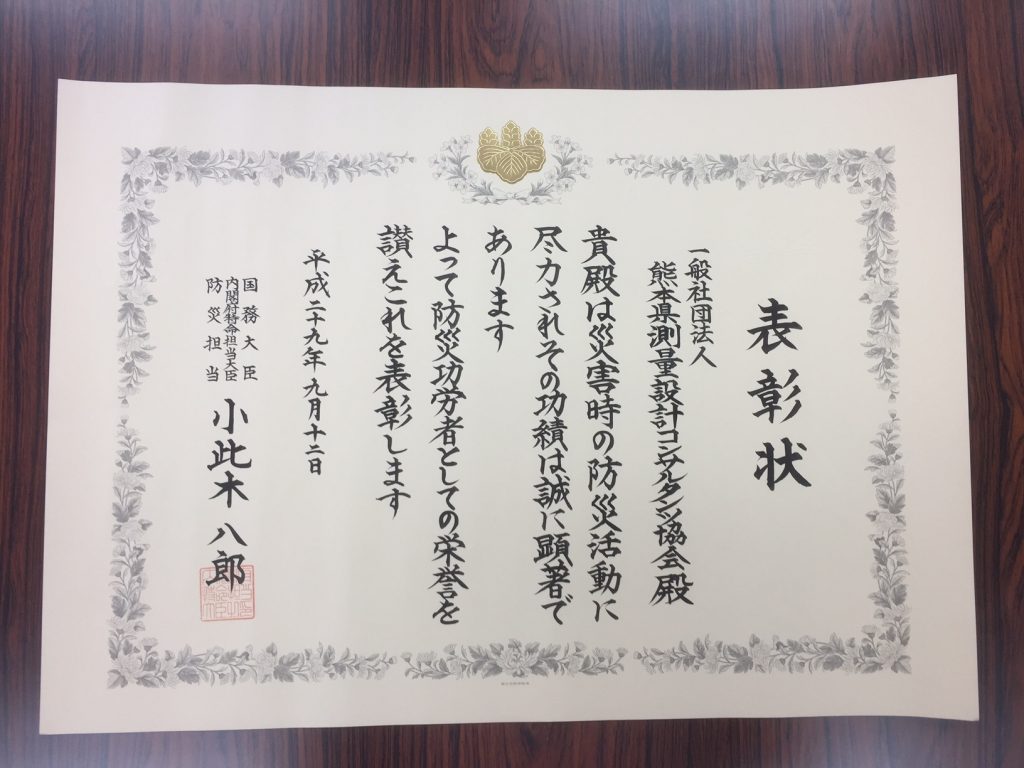 表彰状
一般社団法人
熊本県測量設計コンサルタンツ協会殿
貴殿は災害時の防災活動に
尽力されその功績は誠に顕著で
あります
よって防災功労者としての栄誉を
讃えこれを表彰します
平成二十九年九月十二日
国務大臣
内閣府特命担当大臣
防災担当
小此木八郎